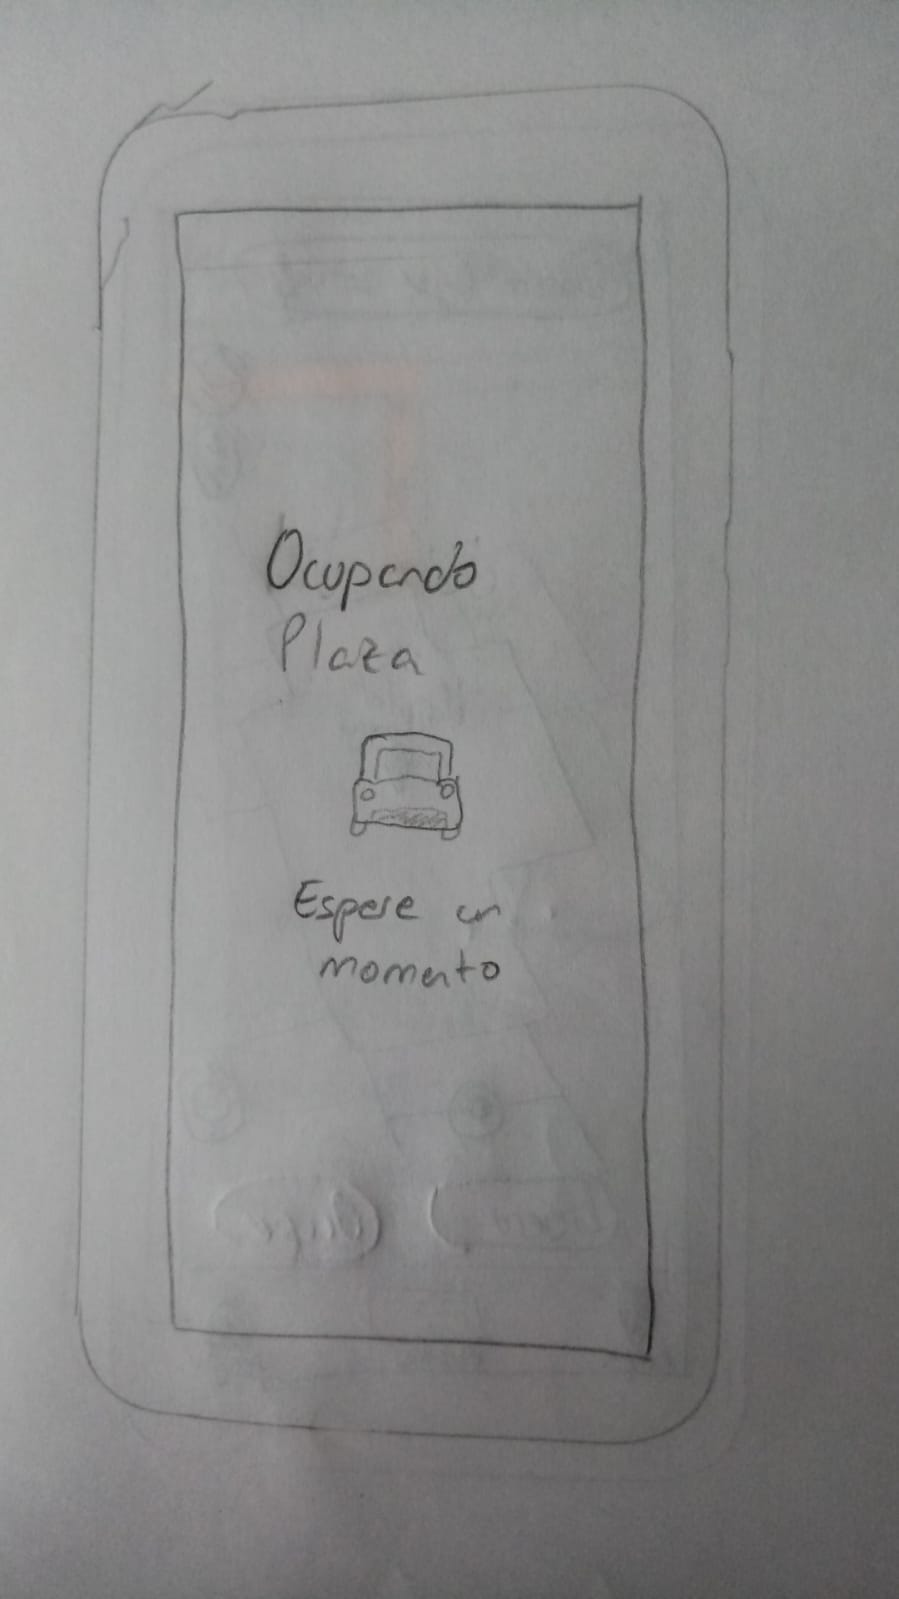 Ocupando
Plaza
Espere un
momento